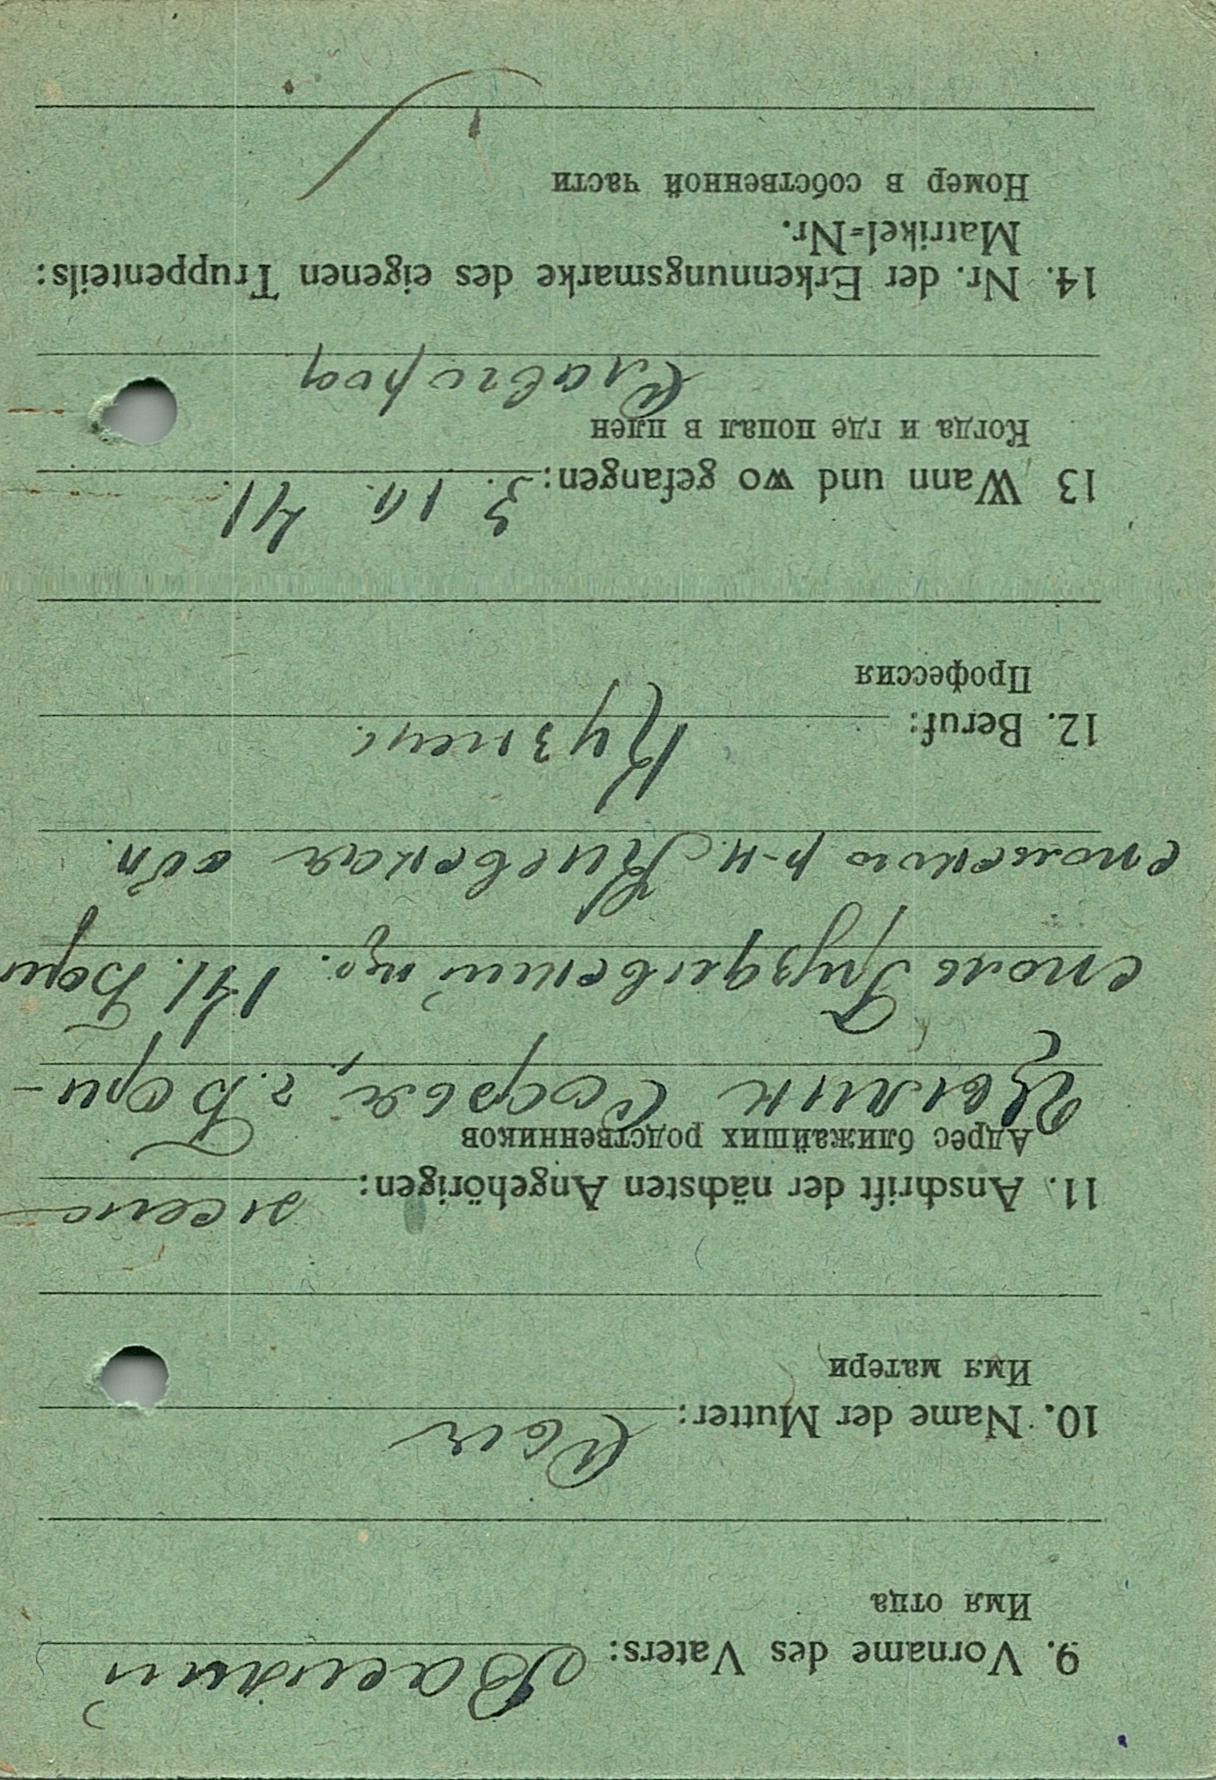 9. Vorname des Vaters: Василий
Имя отца
10. Name der Mutter:
Имя матери
11. Anschrift der nächsten Angehörigen:
Адрес ближайших родственников
Цылик Софья, г. Бори-
споль
р-н. Киевская обл.
12. Beruf: Кузнец.
Профессия
13 Wann und wo gefangen: 3. 10. 41
Когда и где попал в плен
Славгород
14. Nr. der Erkennungsmarke des eigenen Truppenteils:
Matrikel=Nr.
Номер в собственной части